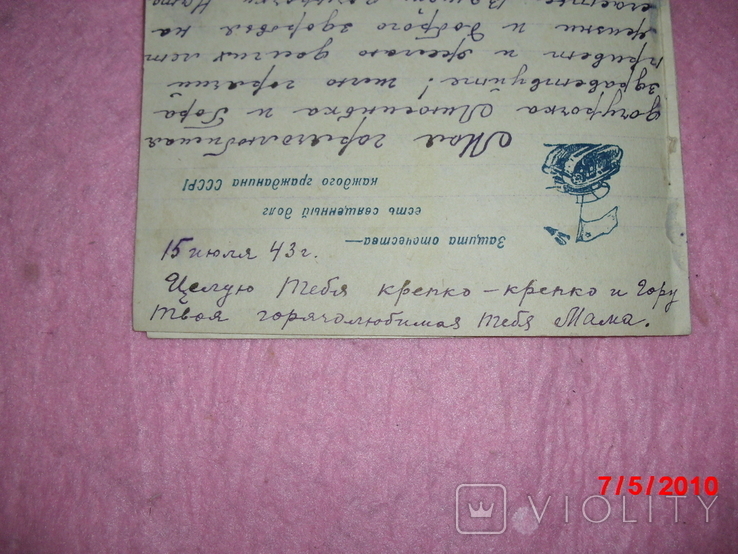 15 июля 43 г.
Целую тебя крепко-крепко и Гору
твоя горячолюбимая тебя Мама.
Защита отечества—
есть священный долг
каждого гражданина СССР!
Моя горячолюбимая
дочурочка Люсинька и Гора
здравствуйте! шлю горячий
привет и желаю долгих лет
жизни и доброго здоровья на
7/5/2010
VIOLITY